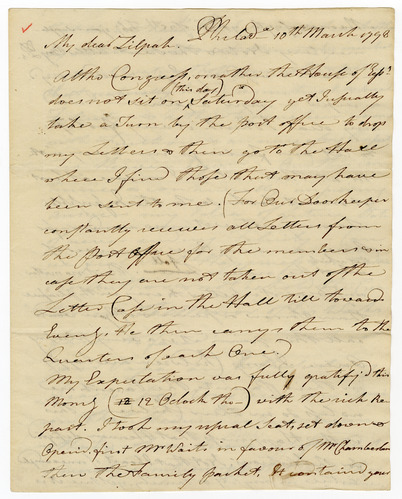 Philad.a 10th March 1798
My dear Zilpah.
Altho Congress, or rather the House of Rep.s
does not sit on (this day) Saturday yet I usually
take a Turn by the post office to drop
my Letters & then go to the Hall
where I find those that may have
been sent to me. (For Our Doorkeeper
constantly receives all Letters from
the Post Office for the members & in
case they are not taken out of the
Letter Case in the Hall till toward
Eveng. He then carrys them to the
Quarters of each One.)
My Expectation was fully gratify'd this
Morng (12 12 Oclock tho) with the rich Re
past. I took my usual Seat, set down &
Open'd first Mr Waits in favour of Mr Chamberlain
then the Family packet. It contained your